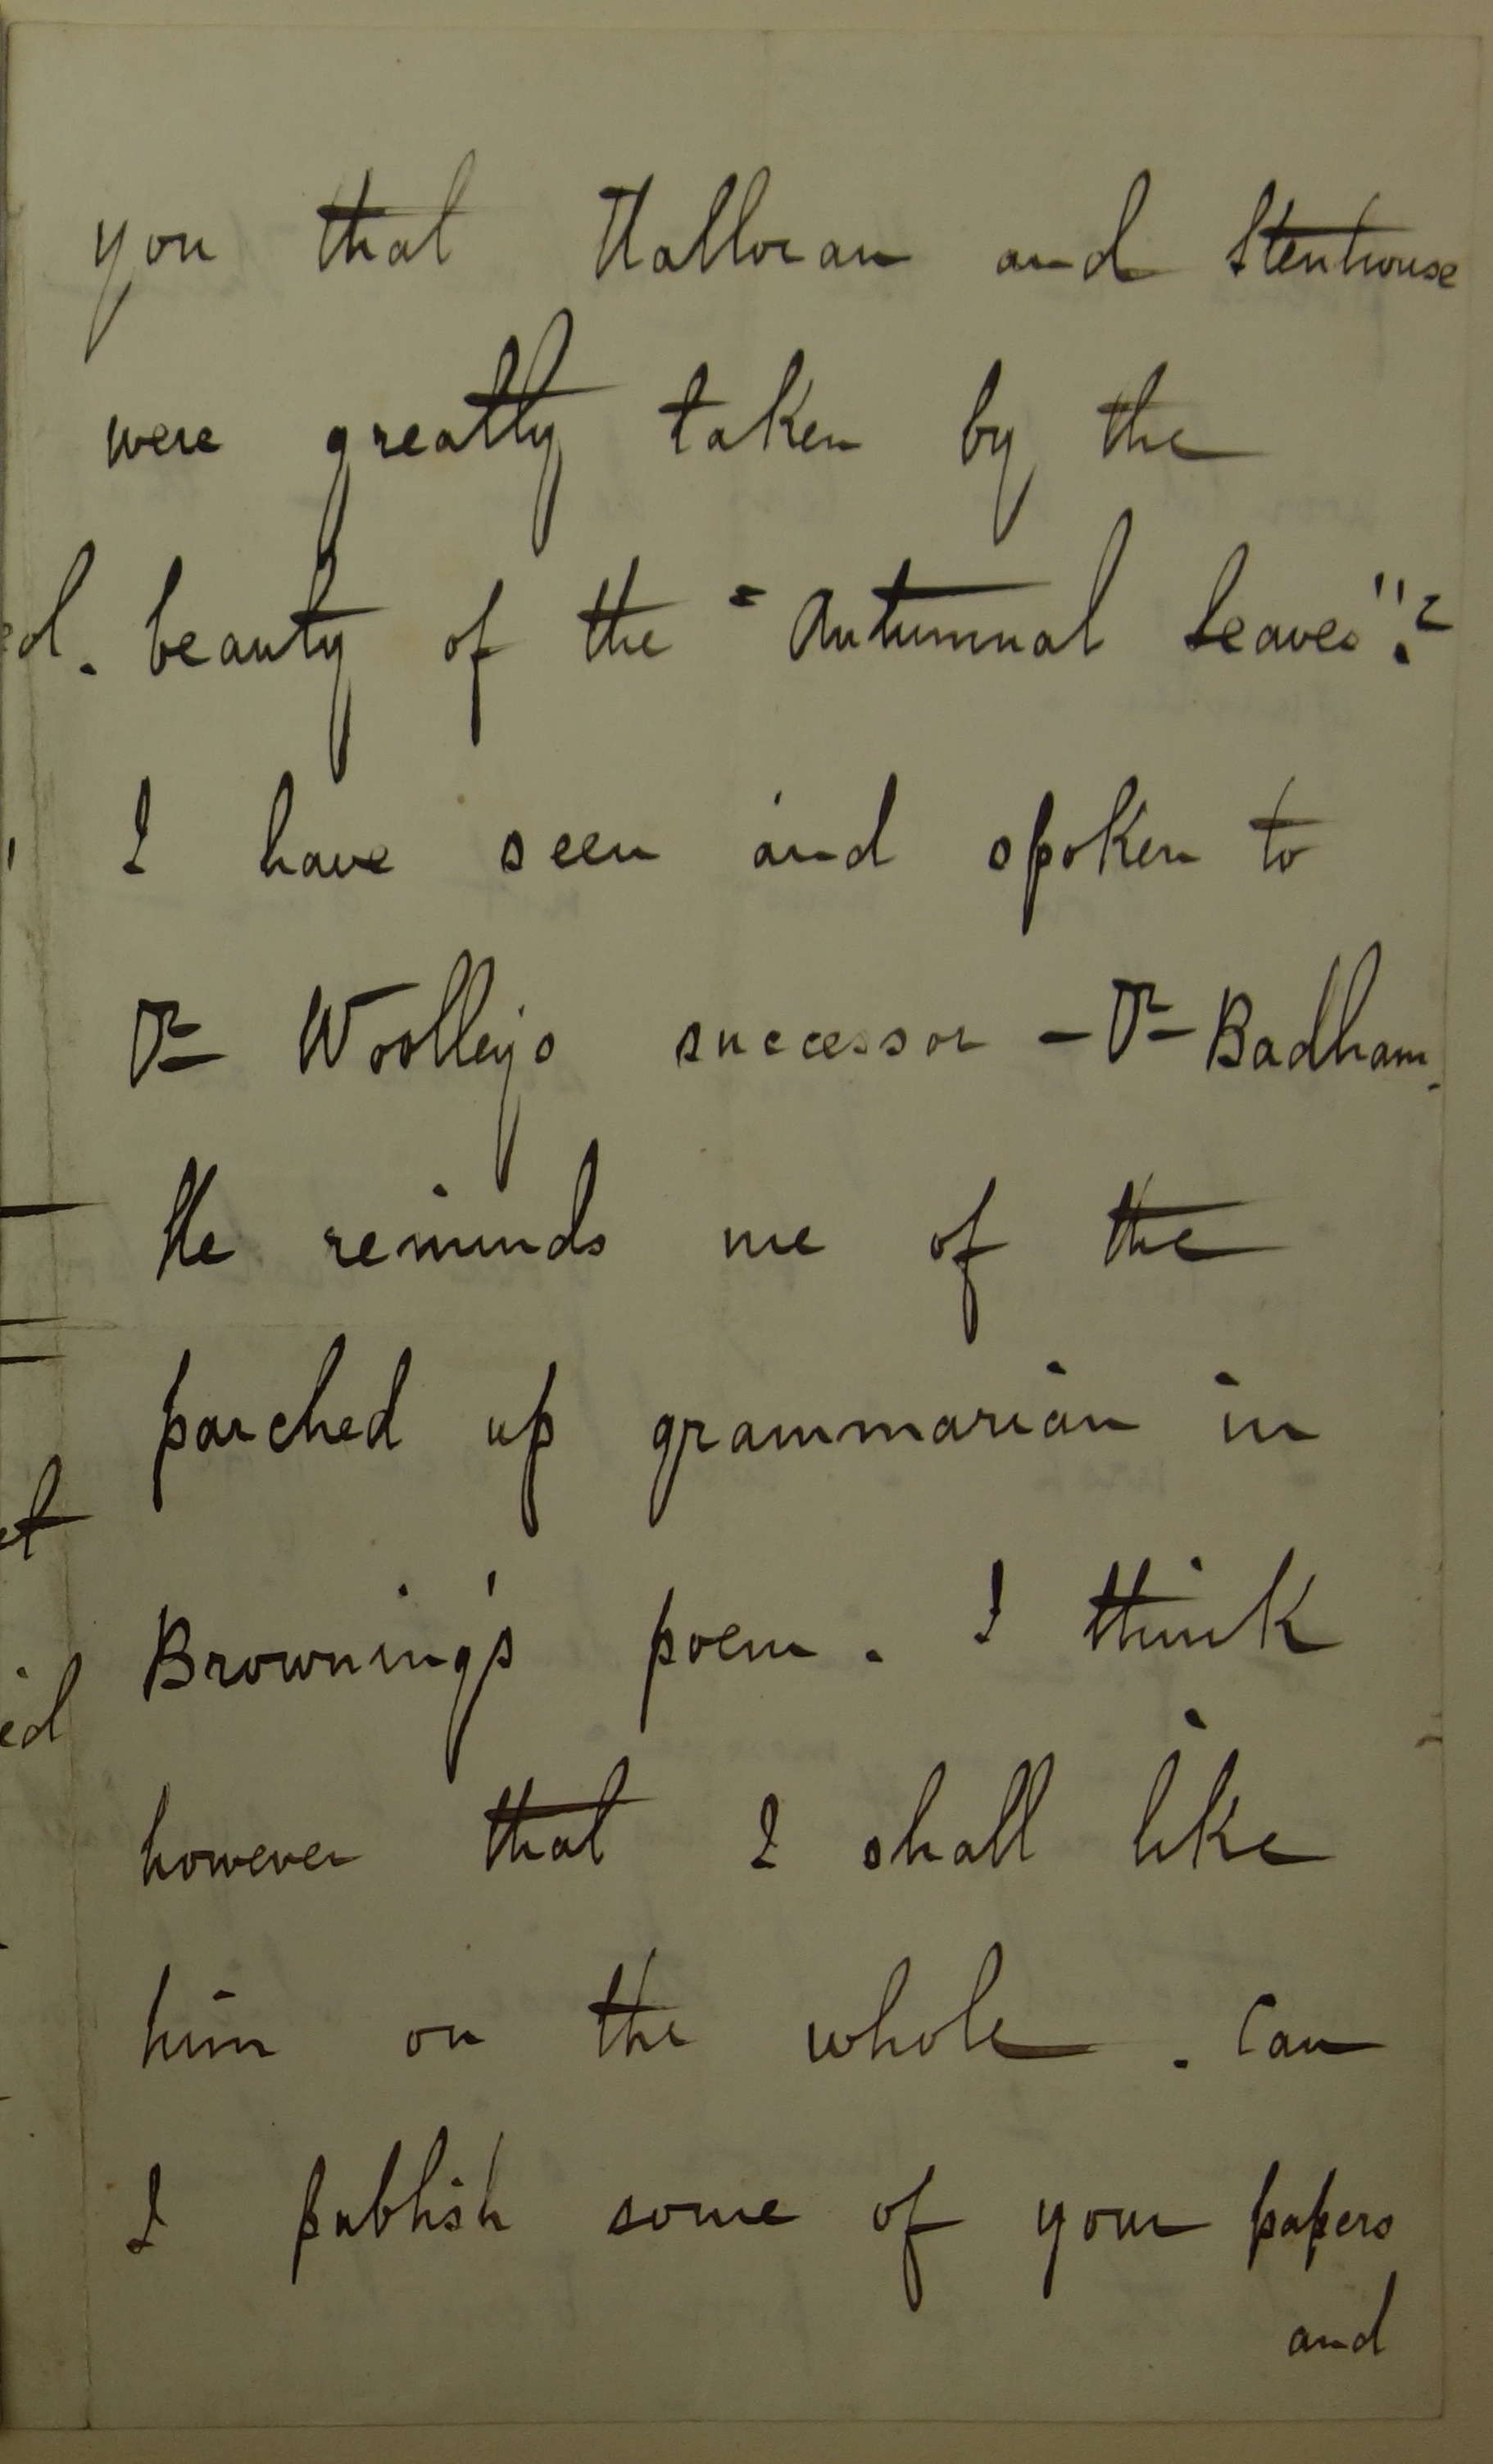 you that Halloran and Stenhouse
were greatly taken by the
beauty of the "Autumnal Leaves"?
I have seen and spoken to
Dr Woolley's successor – Dr Badham.
He reminds me of the
parched up grammarian in
Browning's poem. I think
however that I shall like
him on the whole. Can
I publish some of your papers
and